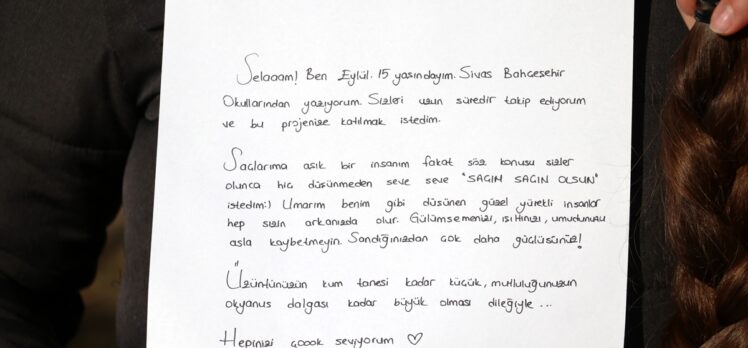 Selaaam! Ben Eylül. 15 yaşındayım. Sivas Bahçeşehir
Okullarından yazıyorum. Sizleri uzun süredir takip ediyorum
ve bu projenize katılmak istedim.
Saçlarıma aşık bir insanım fakat söz konusu sizler
olunca hiç düşünmeden seve seve "SAÇIM SAÇIN OLSUN"
istedim:) Umarım benim gibi düşünen güzel yürekli insanlar
hep sizin arkanızda olur. Gülümsemenizi, ışıltınızı, umudunuzu
asla kaybetmeyin. Sandığınızdan çok daha güçlüsünüz!
Üzüntünüzün kum tanesi kadar küçük, mutluluğunuzun
okyanus dalgası kadar büyük olması dileğiyle ...
Hepinizi çoook seviyorum ♡